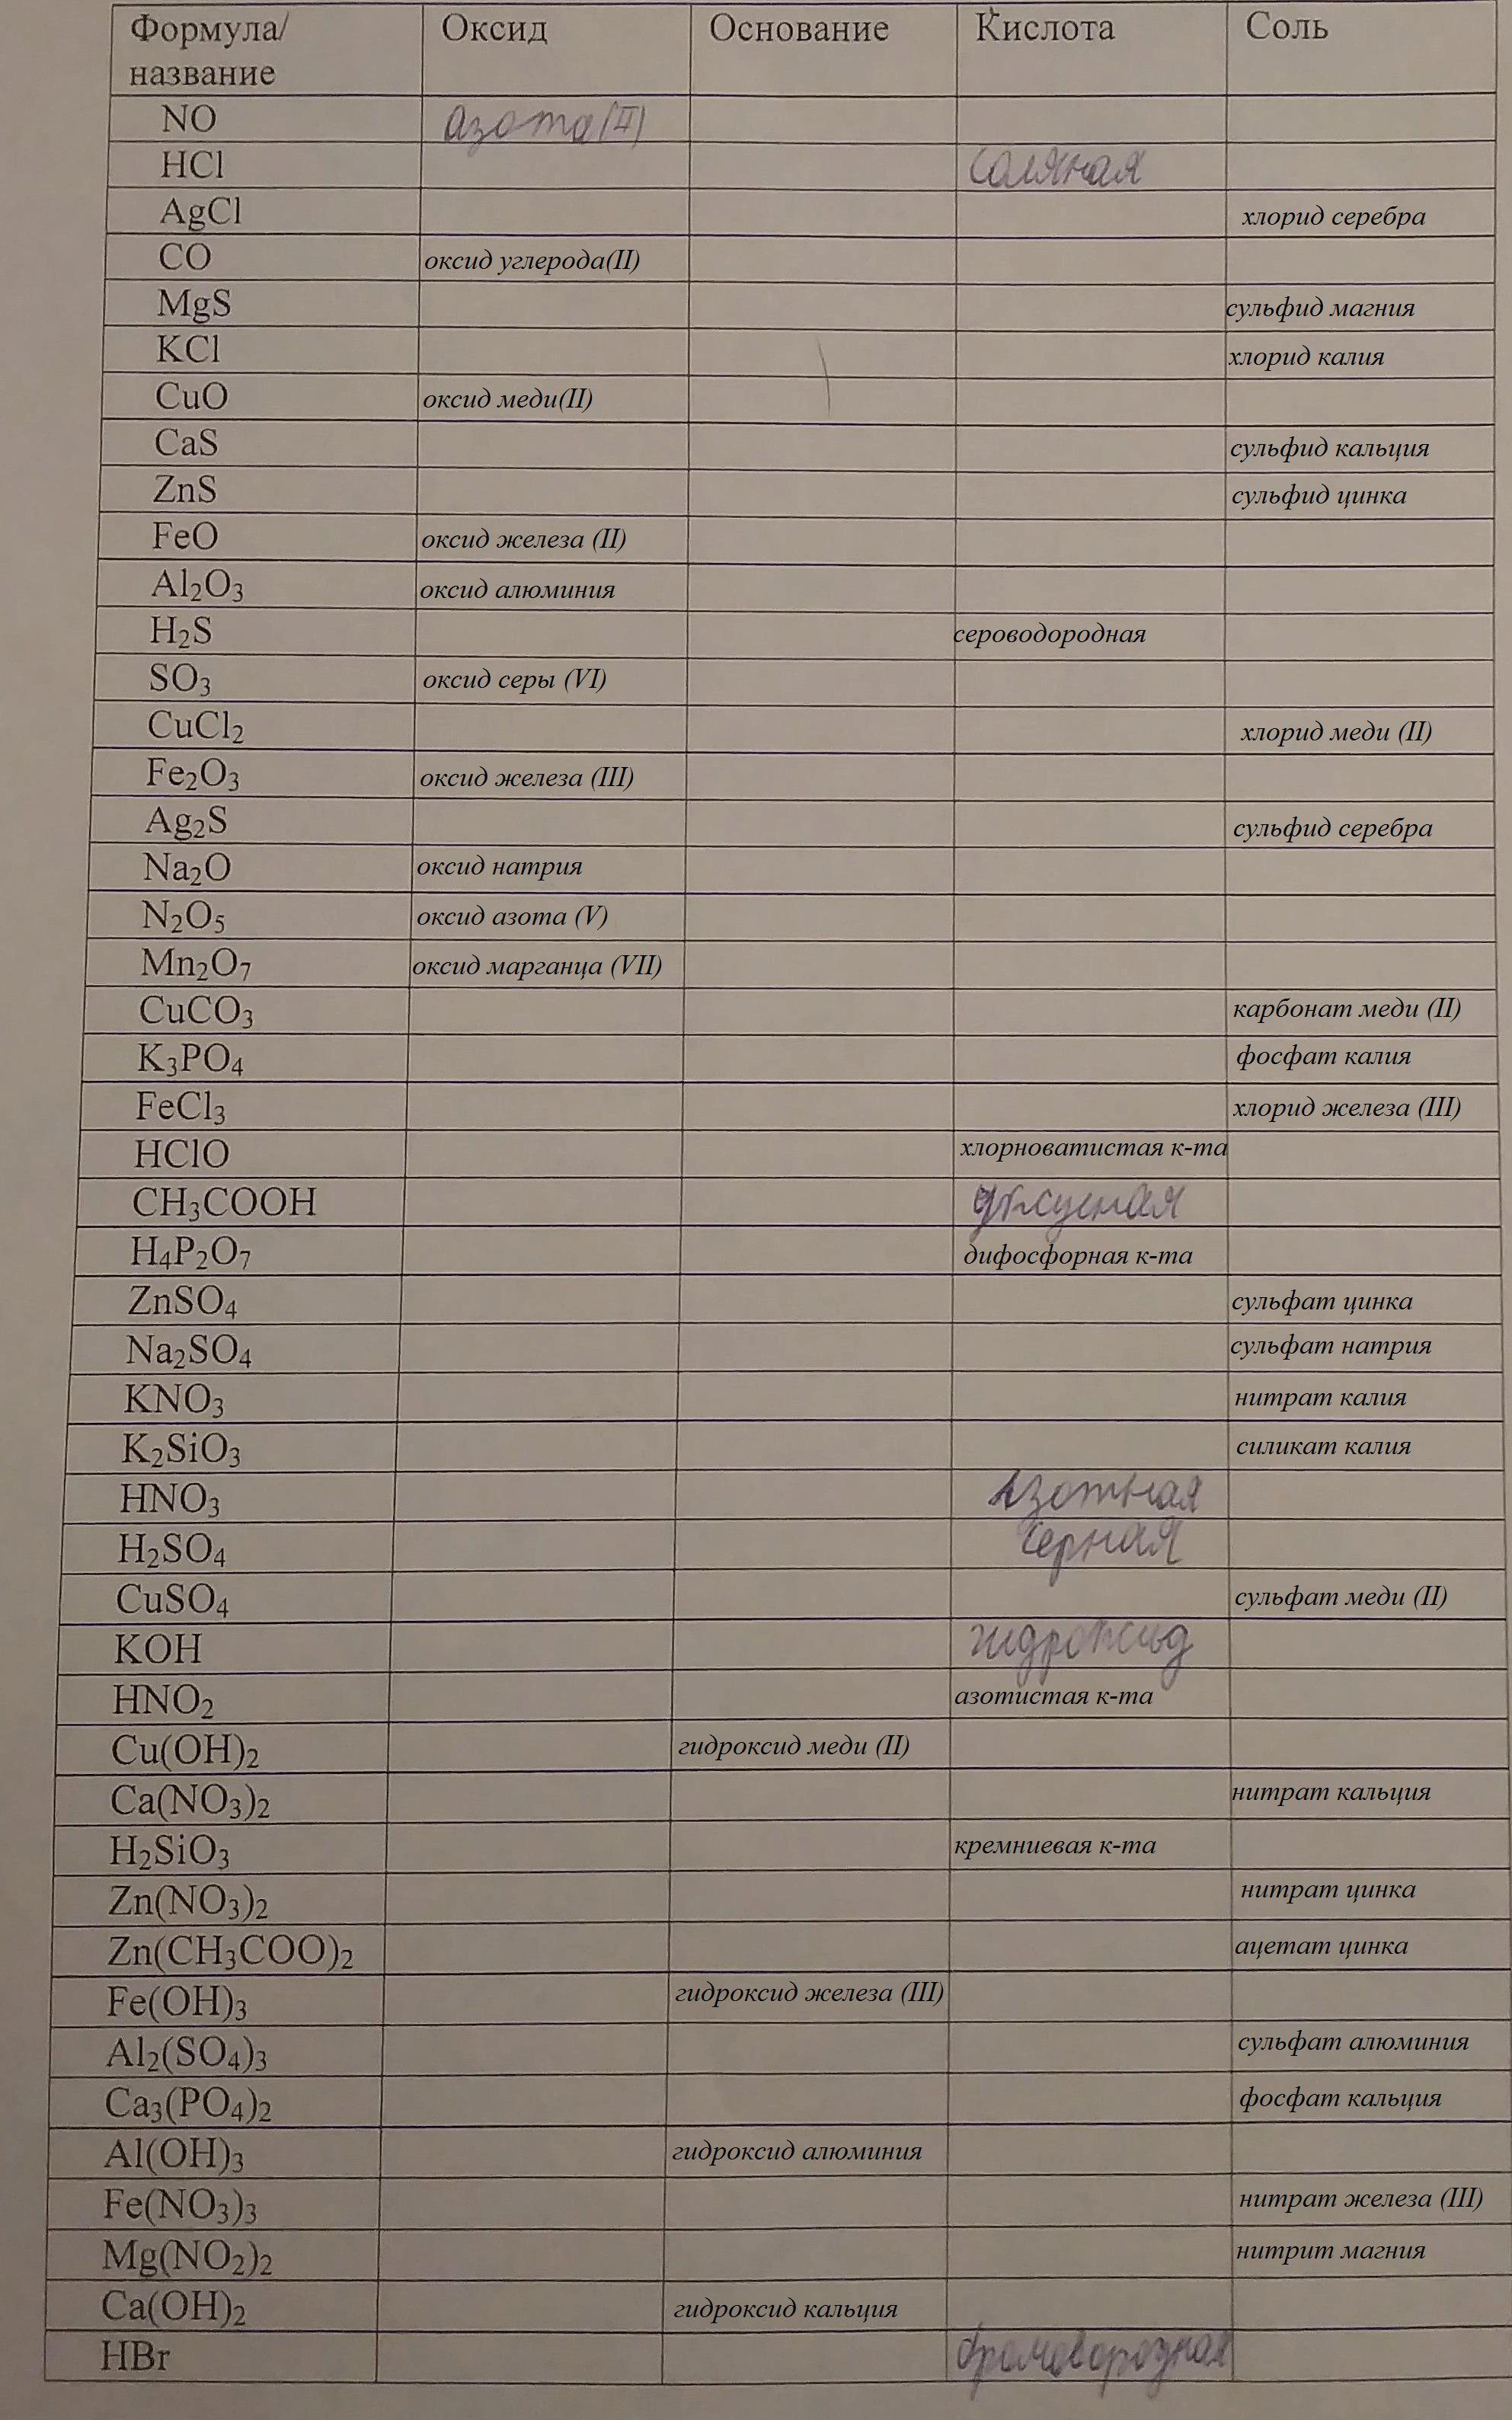 Формула/ Оксид Основание Кислота Соль
название
NO азота (II)
HCl соляная
AgCl хлорид серебра
CO оксид углерода(II)
MgS сульфид магния
KCl хлорид калия
CuO оксид меди(II)
CaS сульфид кальция
ZnS сульфид цинка
FeO оксид железа (II)
Al₂O₃ оксид алюминия
H₂S сероводородная
SO₃ оксид серы (VI)
CuCl₂ хлорид меди (II)
Fe₂O₃ оксид железа (III)
Ag₂S сульфид серебра
Na₂O оксид натрия
N₂O₅ оксид азота (V)
Mn₂O₇ оксид марганца (VII)
CuCO₃ карбонат меди (II)
K₃PO₄ фосфат калия
FeCl₃ хлорид железа (III)
HClO хлорноватистая к-та
CH₃COOH уксусная
H₄P₂O₇ дифосфорная к-та
ZnSO₄ сульфат цинка
Na₂SO₄ сульфат натрия
KNO₃ нитрат калия
K₂SiO₃ силикат калия
HNO₃ азотная
H₂SO₄ серная
CuSO₄ сульфат меди (II)
KOH гидроксид
HNO₂ азотистая к-та
Cu(OH)₂ гидроксид меди (II)
Ca(NO₃)₂ нитрат кальция
H₂SiO₃ кремниевая к-та
Zn(NO₃)₂ нитрат цинка
Zn(CH₃COO)₂ ацетат цинка
Fe(OH)₃ гидроксид железа (III)
Al₂(SO₄)₃ сульфат алюминия
Ca₃(PO₄)₂ фосфат кальция
Al(OH)₃ гидроксид алюминия
Fe(NO₃)₃ нитрат железа (III)
Mg(NO₂)₂ нитрит магния
Ca(OH)₂ гидроксид кальция
HBr бромоводородная